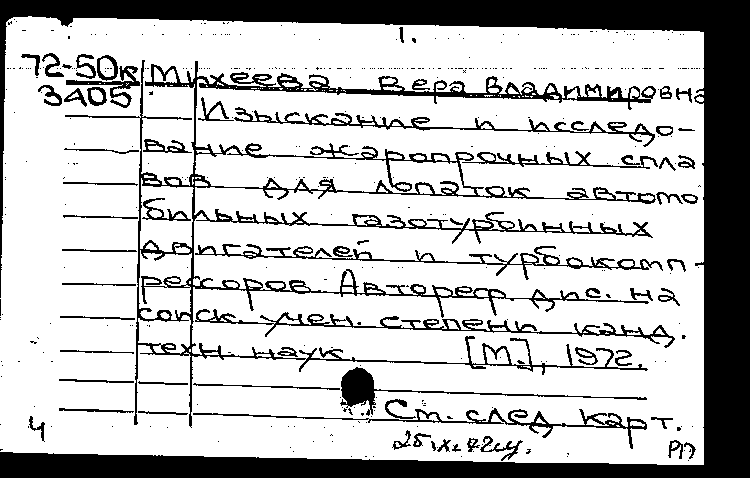 1.
72-50к Михеева, Вера Владимировна
3405 Изыскание и исследо-
вание жаропрочных спла-
вов для лопаток автомо
бильных газотурбинных
двигателей и турбокомп-
рессоров. Автореф. дис. на
соиск. учен. степени канд.
техн. наук. [М.], 1972.
См. след. карт.
4
РП